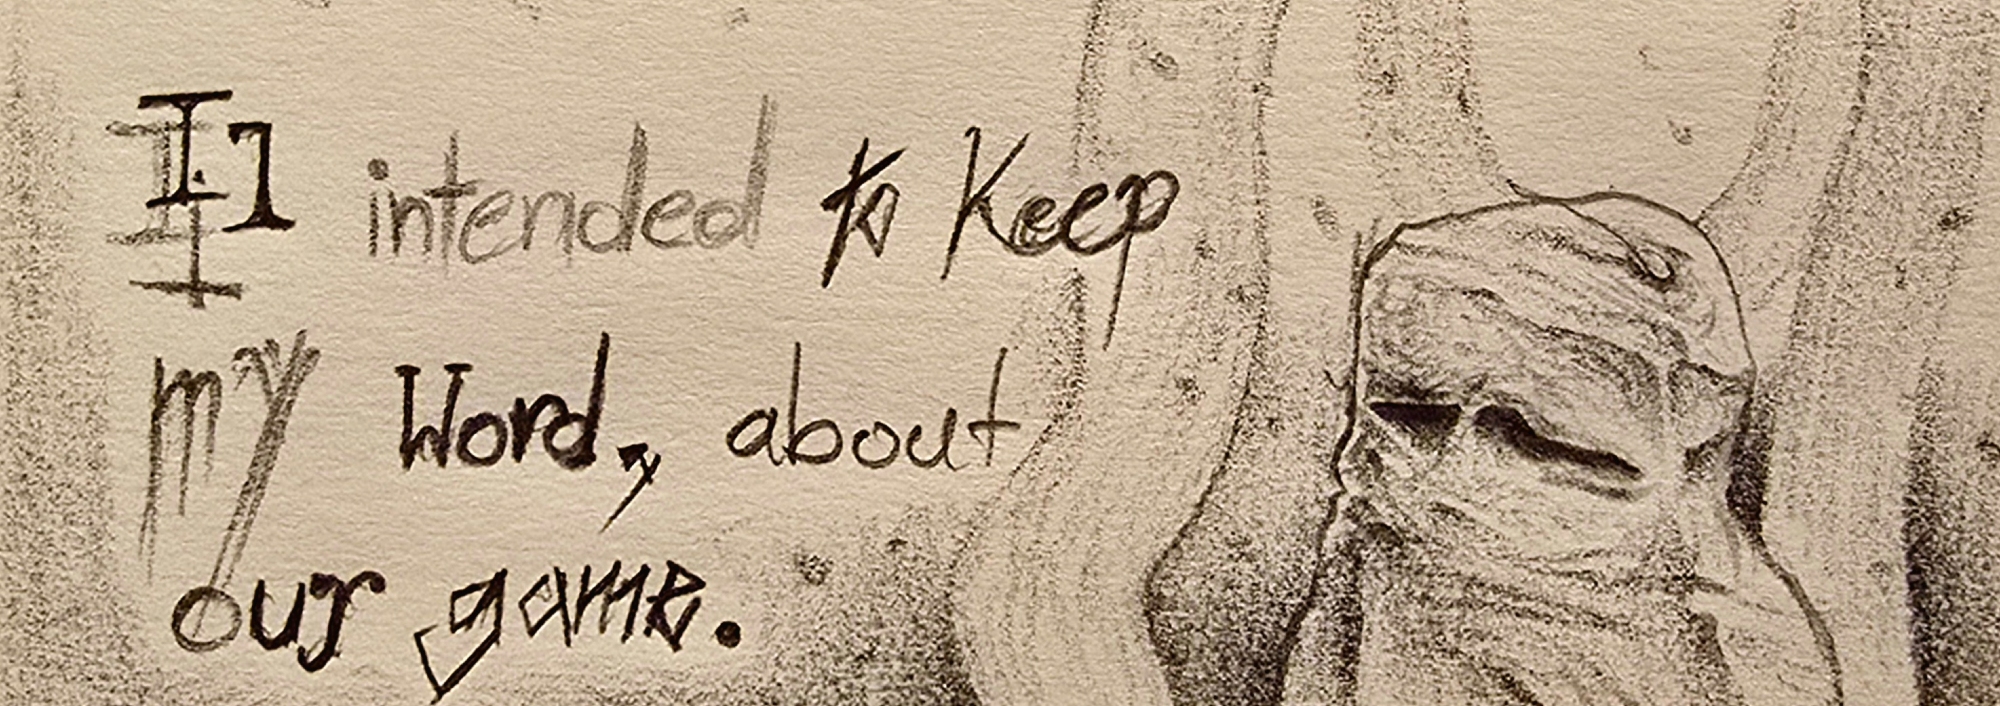 I intended to Keep
my Word, about
our game.